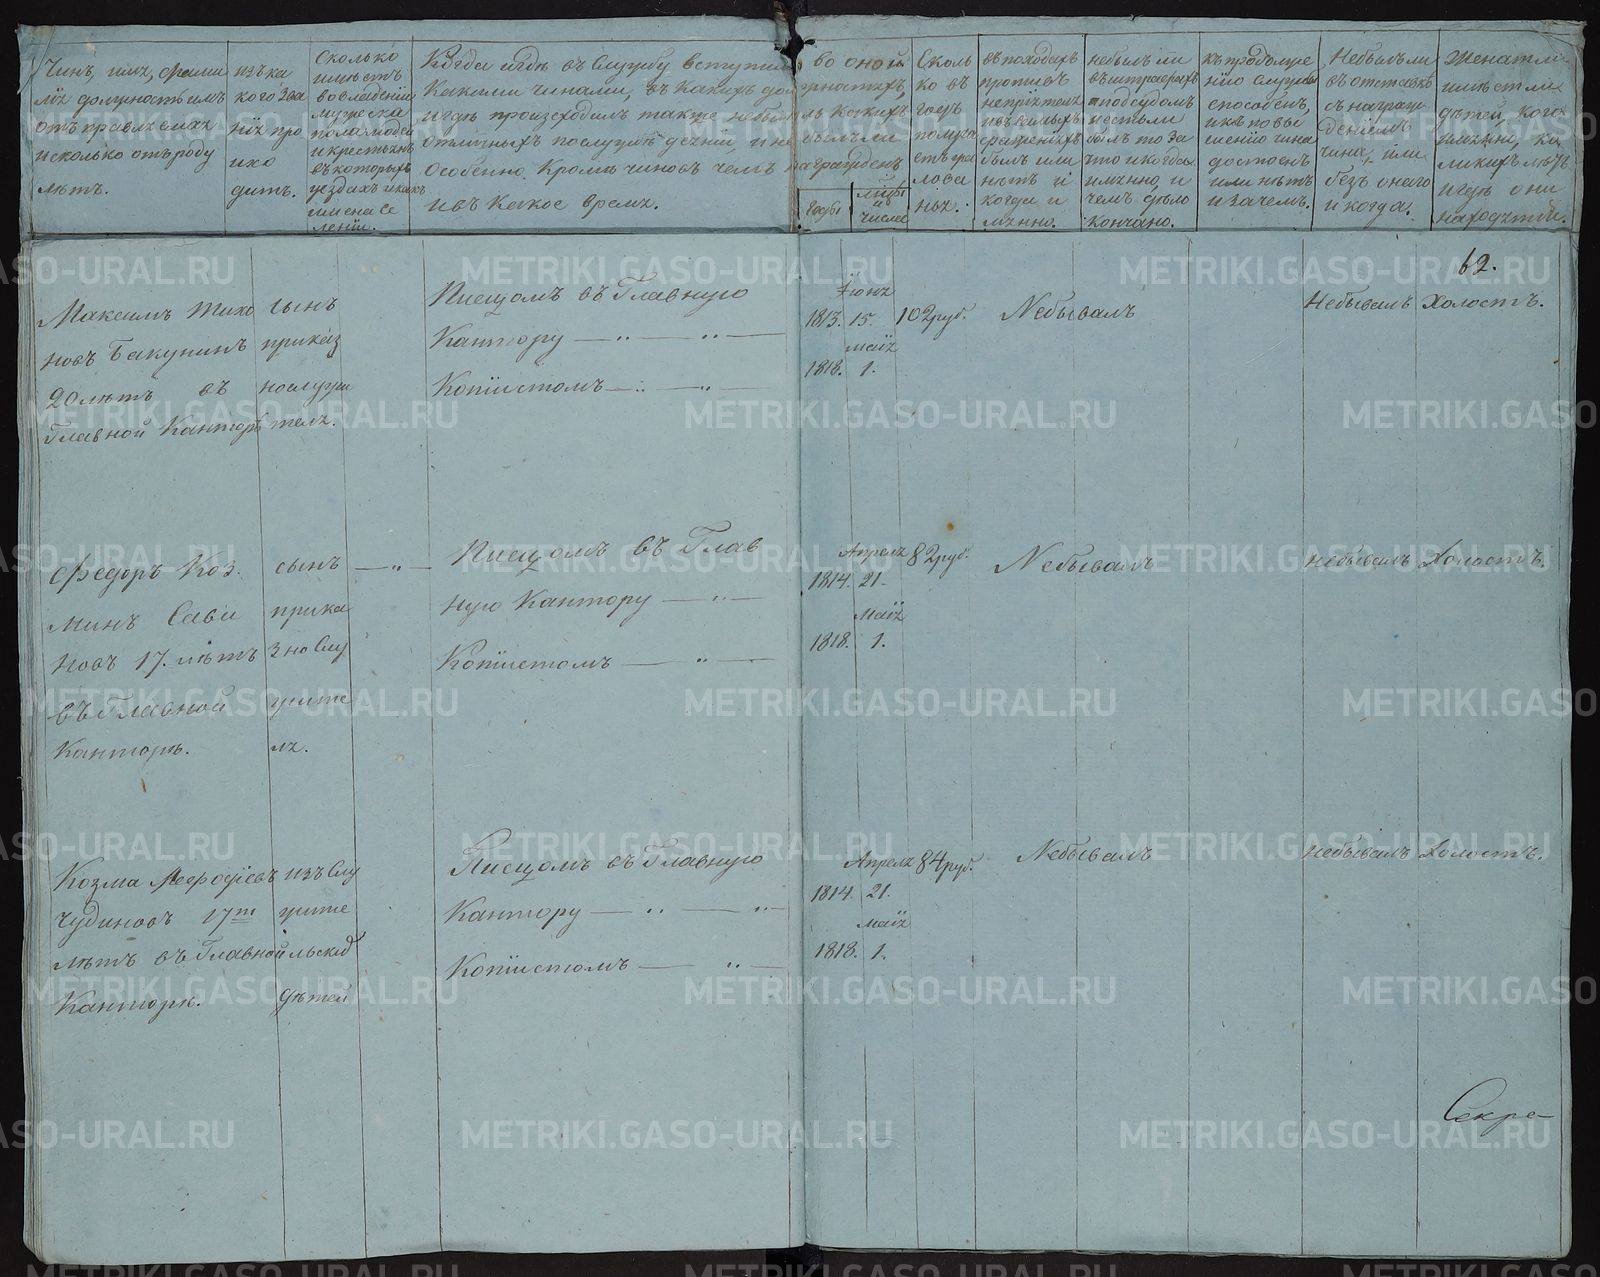 Чинъ, имя, фами
лія должность имъ
отправляемая
и сколько отъ роду
лѣтъ.
изъ ка
кого зва
нія про
ихо
дитъ.
Сколько
имѣетъ
во владѣніи
мужеска
пола людей
и крестьянъ
въ которыхъ
уездахъ и какъ
имена се
леній.
Когда и гдѣ въ службу вступилъ
Какими чинами, въ какихъ дол
и гдѣ происходилъ также небы
отличныхъ послужѣ дѣяній, и не
особенно Кромѣ чиновъ чемъ награжденъ
и въ какое время.
во оной
жностяхъ
ль какихъ
былъ ли
Годы
числа
Сколь
ко въ
годъ
получа
етъ жа
лова
нья.
въ походахъ
противъ
непріятеля
и въ самыхъ
сраженіяхъ
былъ или
нѣтъ и
когда и
мянно.
небылъ ли
въ штрафахъ
подсудомъ
и естьли
былъ то за
что и когда
имянно, и
чемъ дѣло
кончано.
къ продолже
нію службы
способенъ,
и къ повы
шенію чина
достоенъ
или нѣтъ
и зачемъ.
Небылъ ли
въ отставкѣ
съ награж
деніемъ
чина, или
безъ онаго
и когда.
Женатъ ли
имѣетъ ли
дѣтей, кого
имянно, ка
ликихъ лѣтъ
и гдѣ они
находятся.
62.
Максимъ Тихо
новъ Бакунинъ
20 лѣтъ въ
Главной Канторѣ
сынъ
приказ
нослужи
теля.
Писцомъ въ Главную
Кантору — „ — „ —
Копіистомъ — „ — „ —
Іюня
1813. 15.
маія
1818. 1.
102 руб.
Небывалъ
Небывалъ
Холостъ.
Федоръ Коз
минъ Сави
новъ 17. лѣтъ
въ Главной
Канторѣ.
сынъ
прика
знослу
жите
ля.
— „ —
Писцомъ въ Глав
ную Кантору — „ —
Копіистомъ — „ —
Апреля
1814. 21.
маія
1818. 1.
82 руб.
Небывалъ
Небывалъ
Холостъ.
Козма Мефодіевъ
Чудиновъ 17ти
лѣтъ въ Главной
Канторѣ.
изъ слу
жите
льскихъ
дѣтей
Писцомъ въ Главную
Кантору — „ — „ —
Копіистомъ — „ —
Апреля
1814. 21.
маія
1818. 1.
84 руб.
Небывалъ
Небывалъ
Холостъ.
Секре-
METRIKI.GASO-URAL.RU